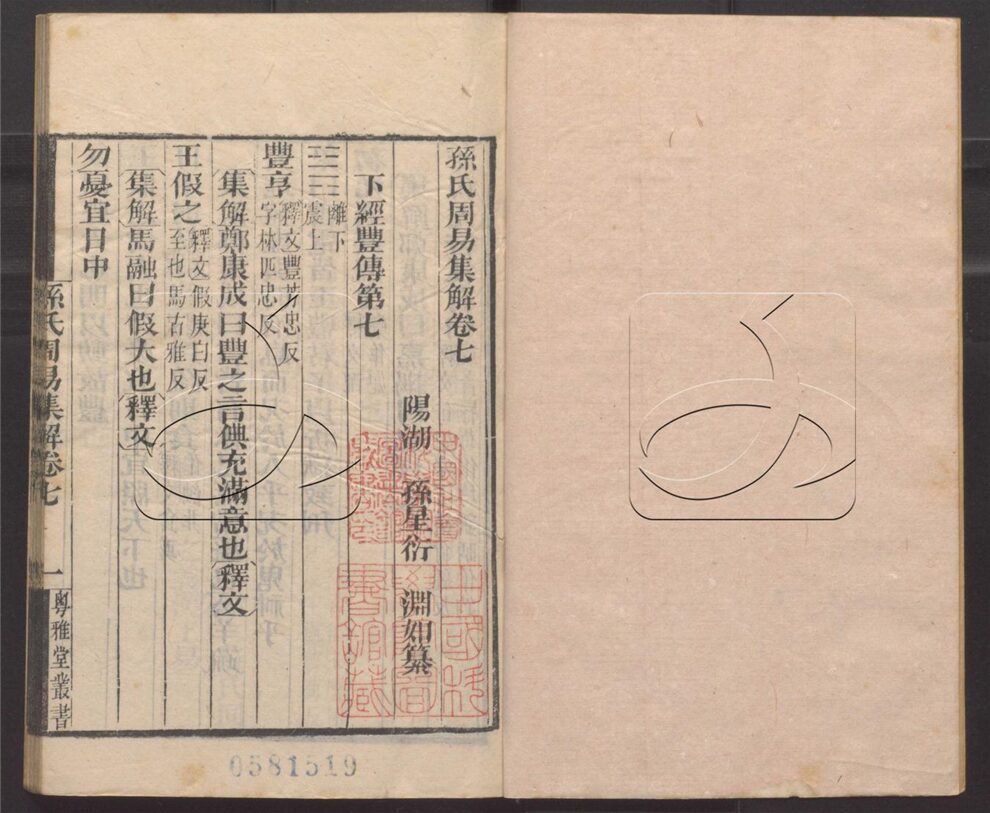 孫氏周易集解卷七
陽湖 孫星衍 淵如纂
下經豐傳第七
離下
震上
豐亨
釋文豐芳忠反
字林匹忠反
集解鄭康成曰豐之言倎充滿意也釋文
王假之
釋文假庚白反
至也馬古雅反
集解馬融曰假大也釋文
勿憂宜日中
孫氏周易集解卷七
一
粵雅堂叢書
0581519